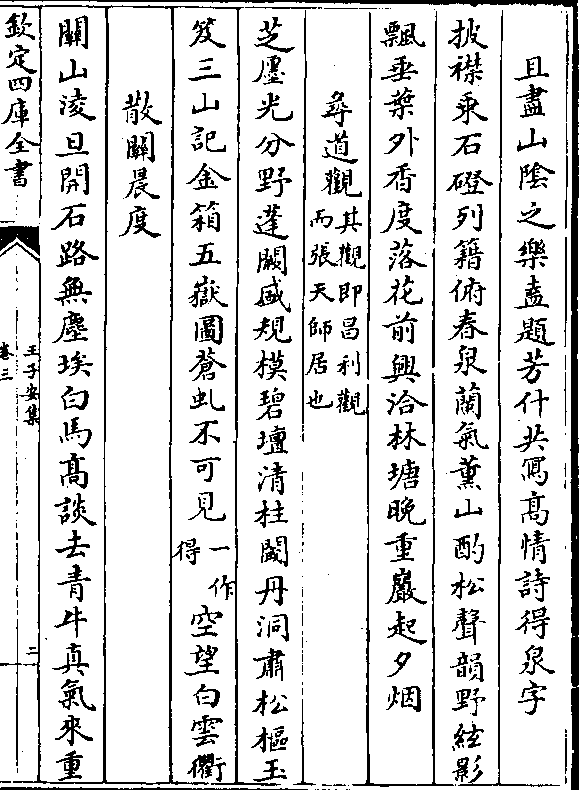 且盡山陰之樂盍題芳什共寫髙情詩得泉字
披襟乗石磴列籍俯春泉蘭氣薫山酌松聲韻野絃影
飄垂葉外香度落花前興洽林塘晚重巖起夕烟
尋道觀其觀即昌利觀
而張天師居也
芝廛光分野蓬闕盛規模碧壇清桂閾丹洞肅松樞玉
笈三山記金箱五嶽圖蒼虬不可見一作
得空望白雲衢
散關晨度
關山淩旦開石路無塵埃白馬髙談去青牛真氣來重
欽定四庫全書
王子安集
卷三
二